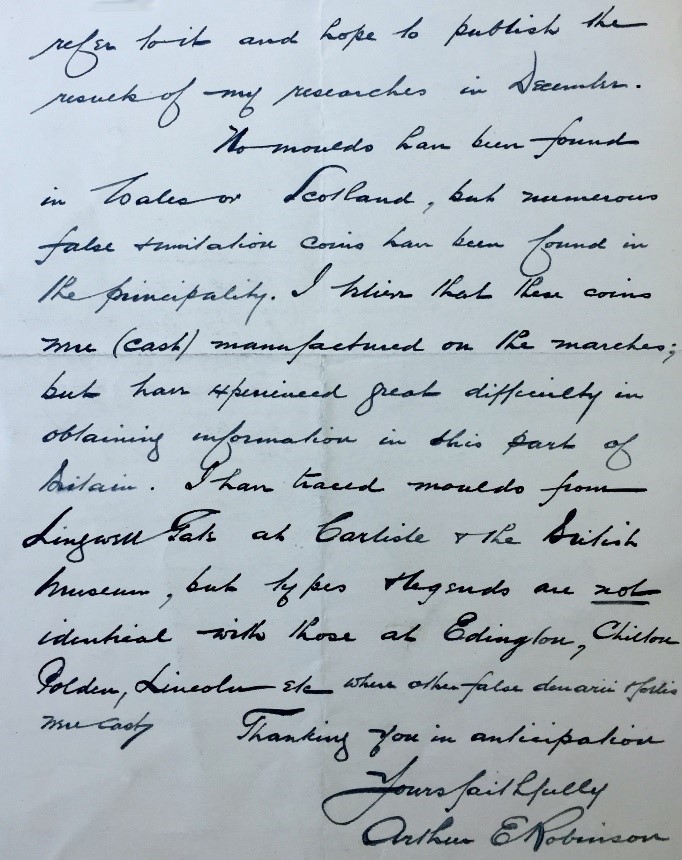 refer to it and hope to publish the
results of my researches in December.
No moulds have been found
in Wales or Scotland, but numerous
false & imitation coins have been found in
the principality. I believe that these coins
were (cast) manufactured on the marches;
but have experienced great difficulty in
obtaining information in this part of
Britain. I have traced moulds from
Lingwell Gate at Carlisle & the British
Museum, but types & legends are not
identical with those at Edington, Chilton
Polden, Lincoln etc where other false denarii &
were cast) Thanking you in anticipation
Yours faithfully
Arthur E Robinson